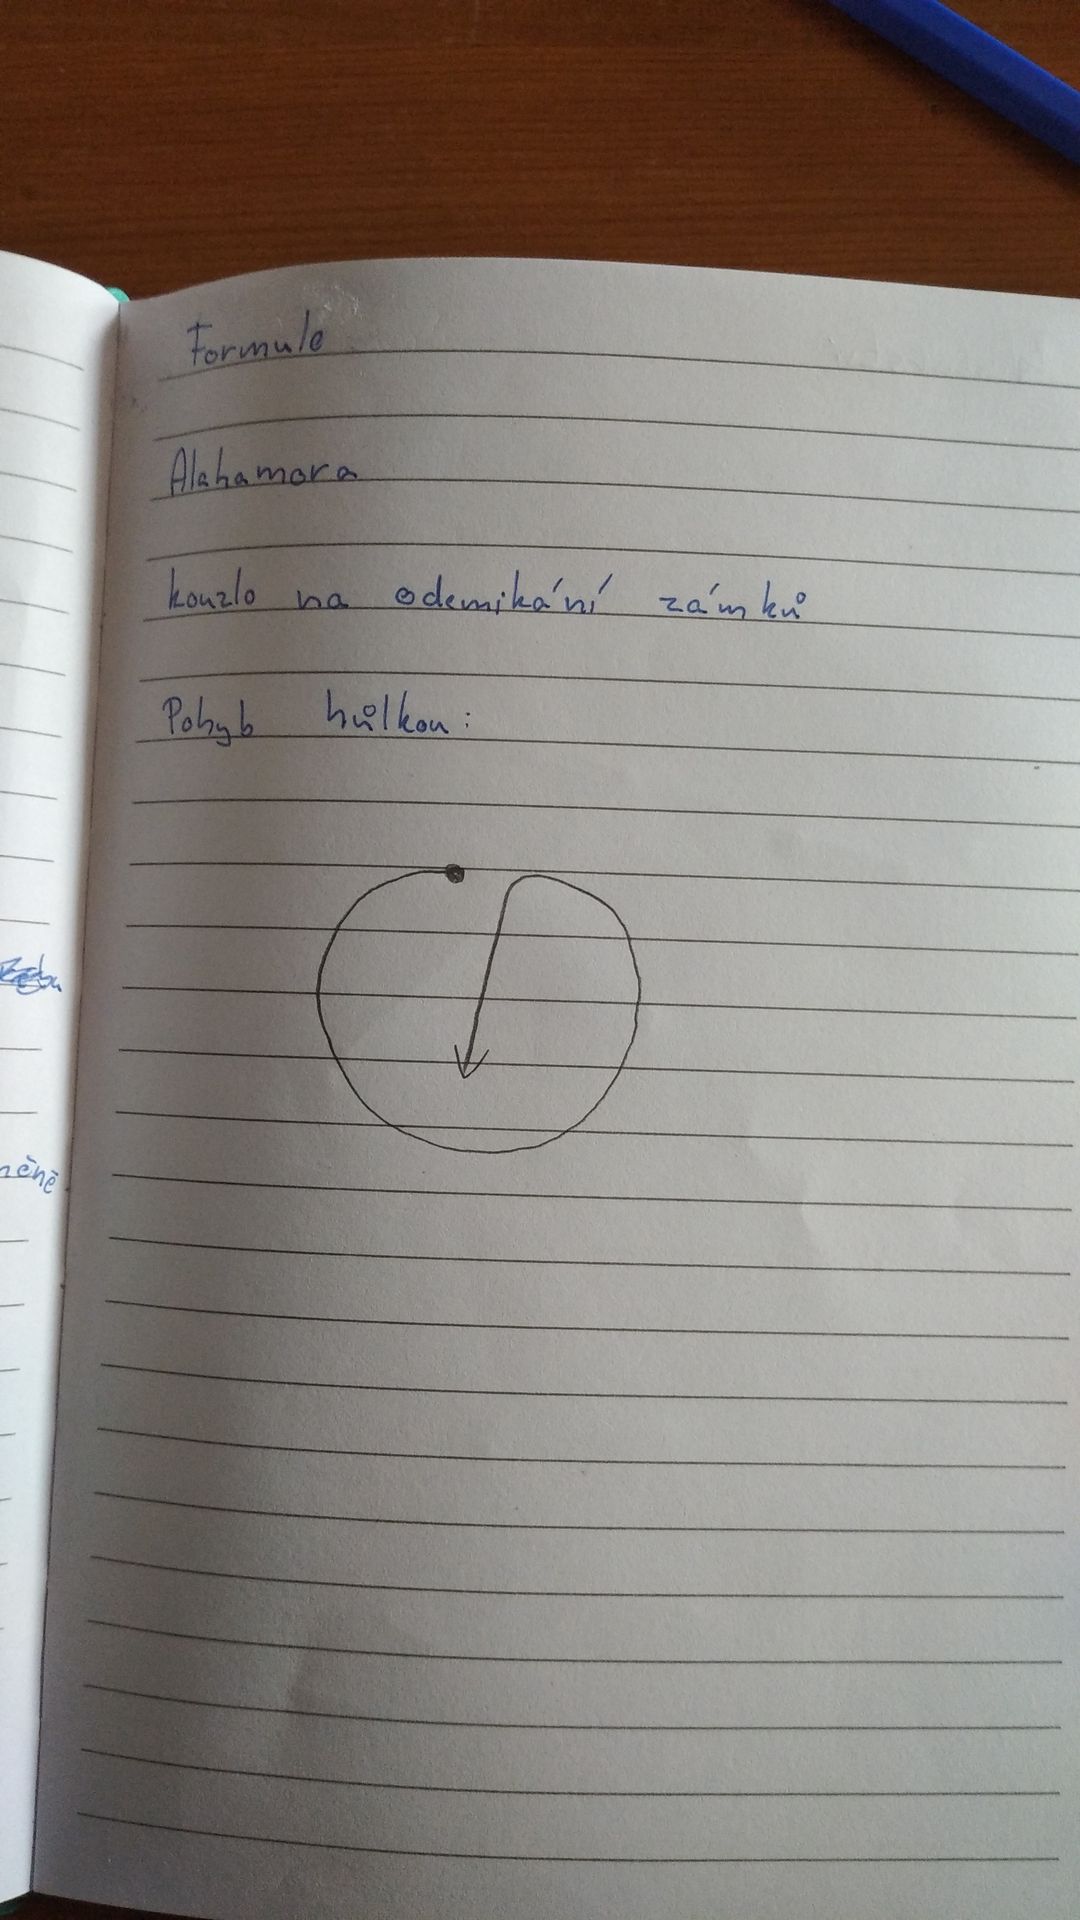 Formule
Alahamora
kouzlo na odemikání zámků
Pohyb hůlkou: